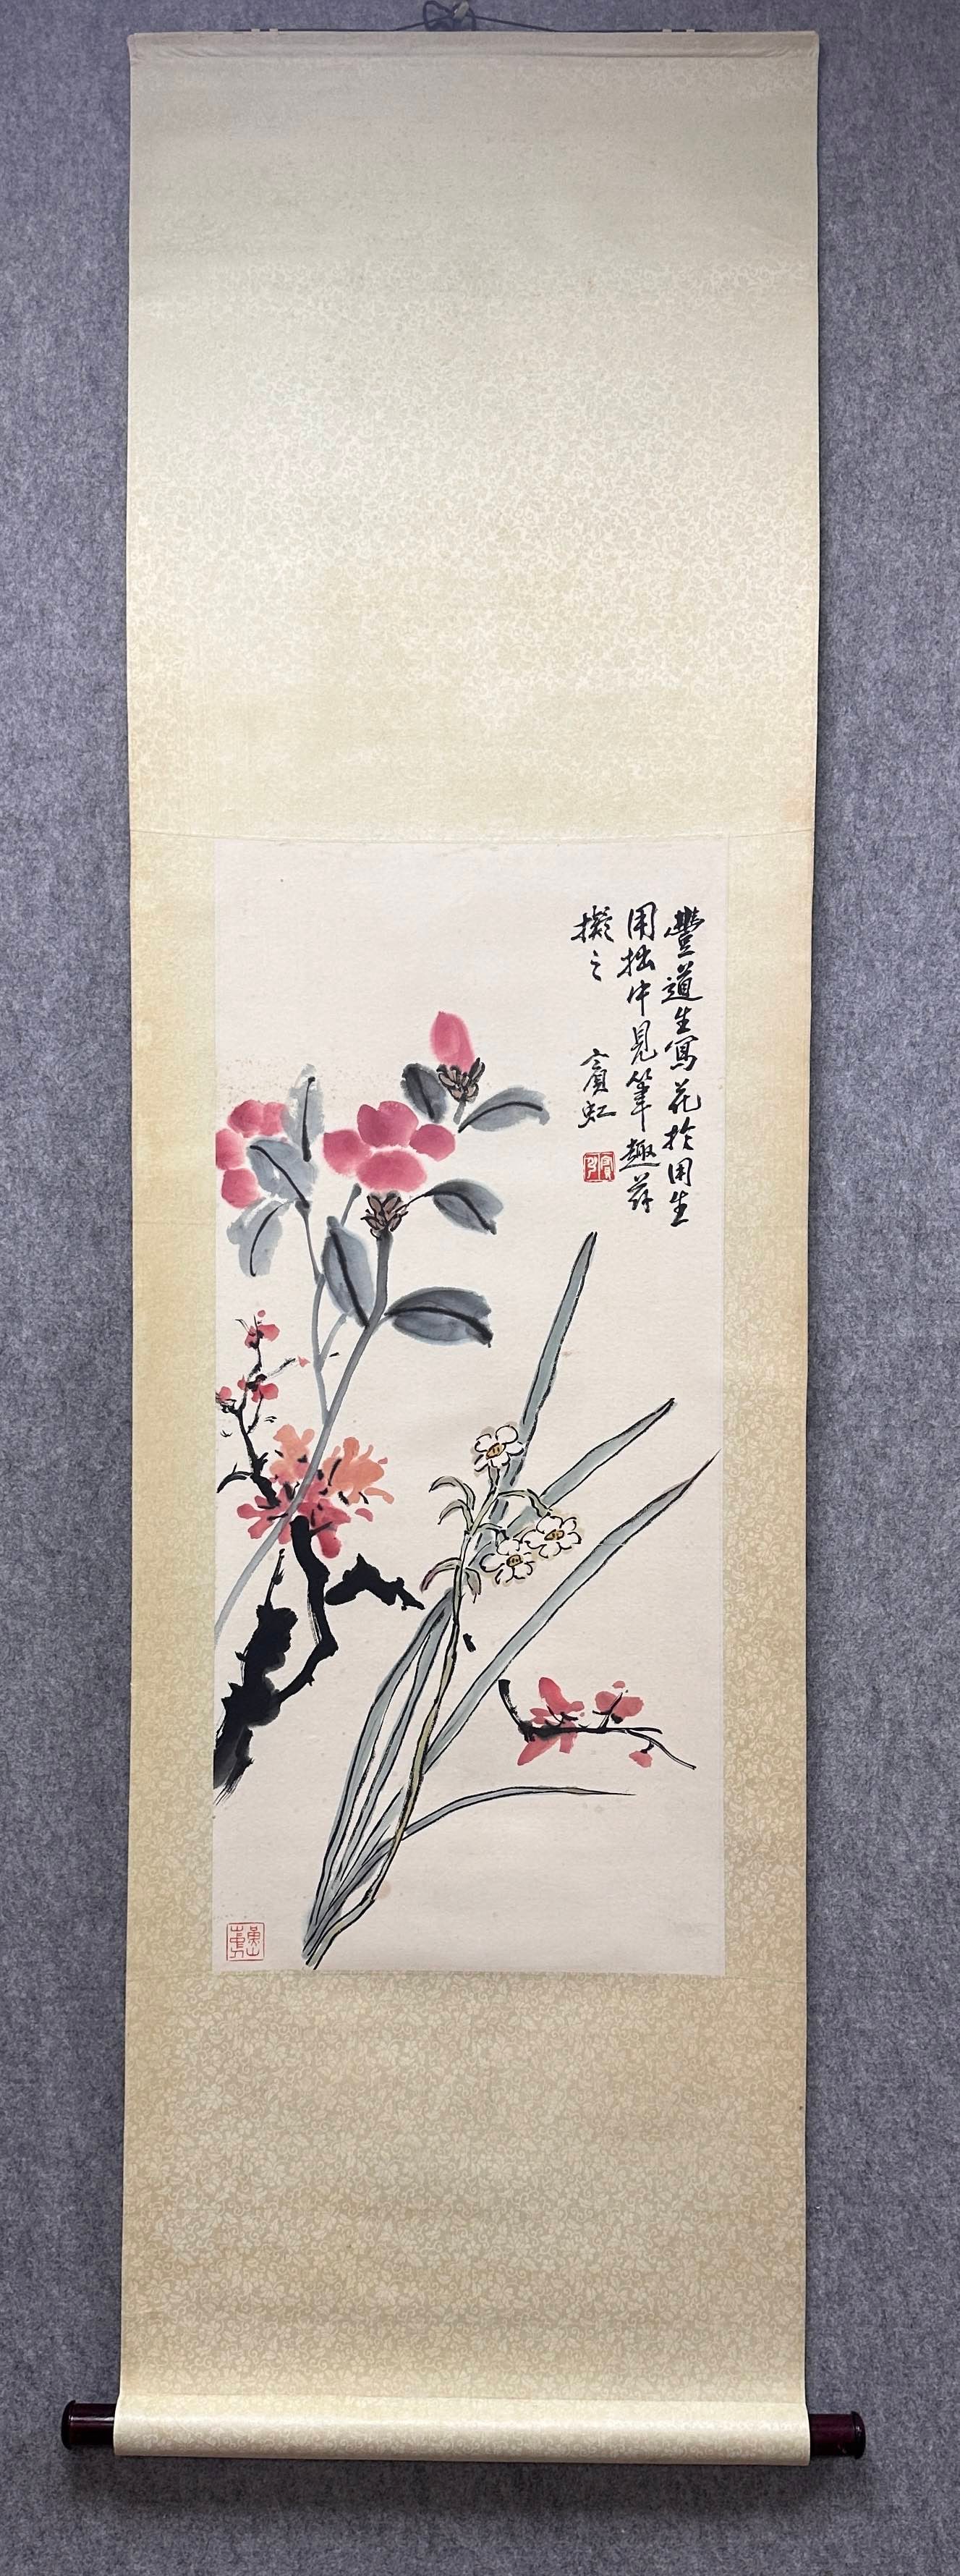 豐道生寫花於用生
用拙中見筆趣茲
擬之
賓虹